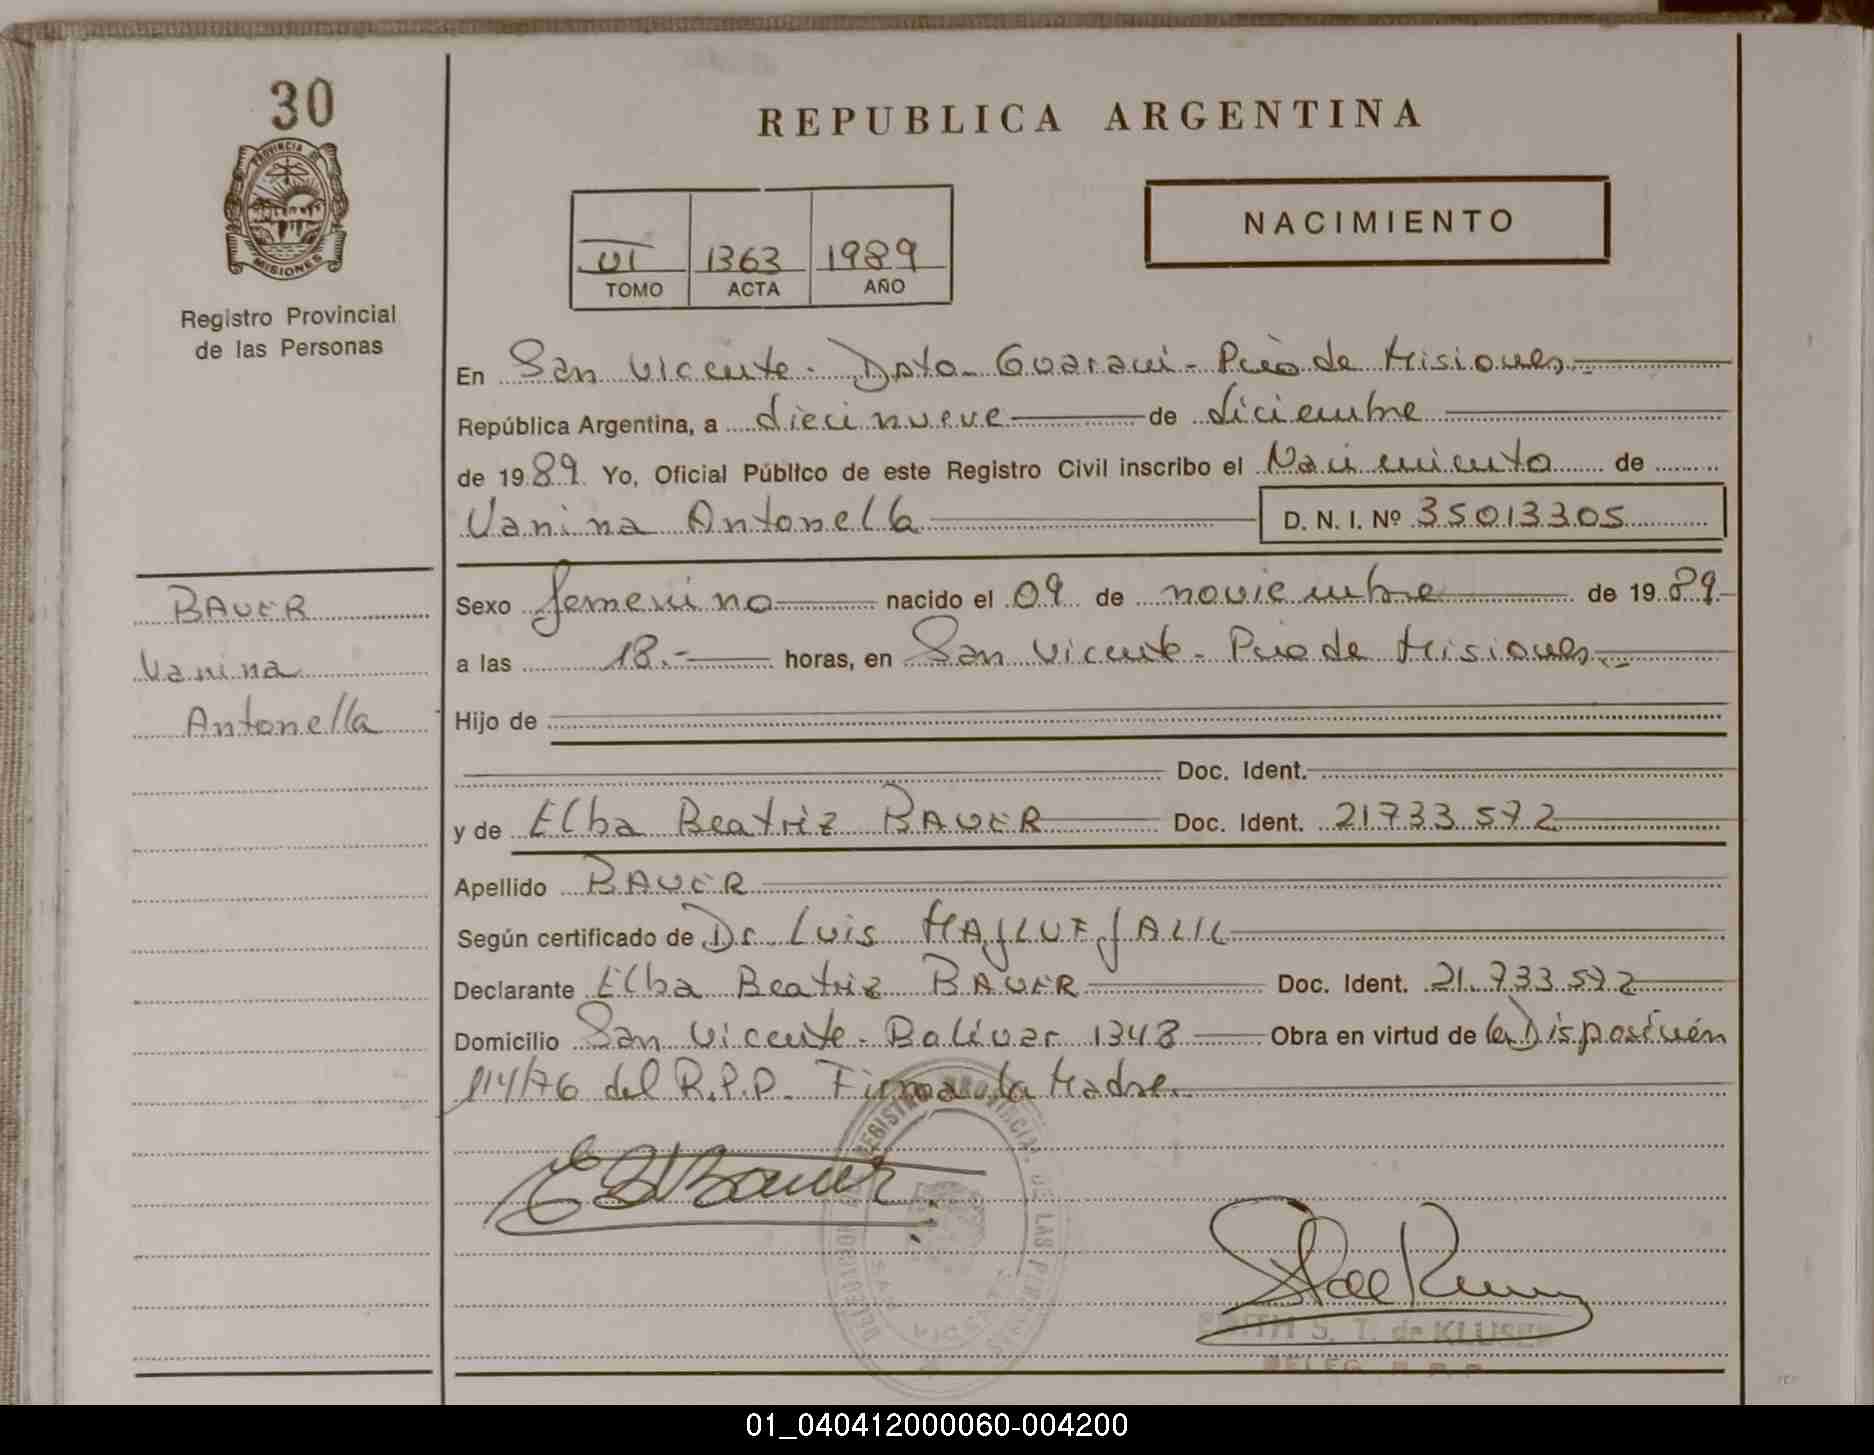 30
PROVINCIA DE
MISIONES
Registro Provincial
de las Personas
REPUBLICA ARGENTINA
NACIMIENTO
VI 1363 1989
TOMO ACTA AÑO
En San Vicente - Dpto. Guaraní - Pcia de Misiones.-
República Argentina, a diecinueve de diciembre
de 1989. Yo, Oficial Público de este Registro Civil inscribo el Nacimiento de
Vanina Antonella D. N. I. Nº 35013305
BAUER
Vanina
Antonella
Sexo femenino nacido el 09 de noviembre de 1989
a las 18.- horas, en San Vicente - Pcia de Misiones.-
Hijo de
Doc. Ident.
y de Elba Beatriz BAUER Doc. Ident. 21733572
Apellido BAUER
Según certificado de Dr. Luis JALIL
Declarante Elba Beatriz BAUER Doc. Ident. 21.733.572
Domicilio San Vicente - Bolívar 1348 Obra en virtud de la Disposición
114/76 del R.P.P. Firma la Madre.
EBBauer
REGISTRO PROVINCIAL DE LAS PERSONAS
S. T. de KLUSE
DELEG. R. P. P.
01_040412000060-004200